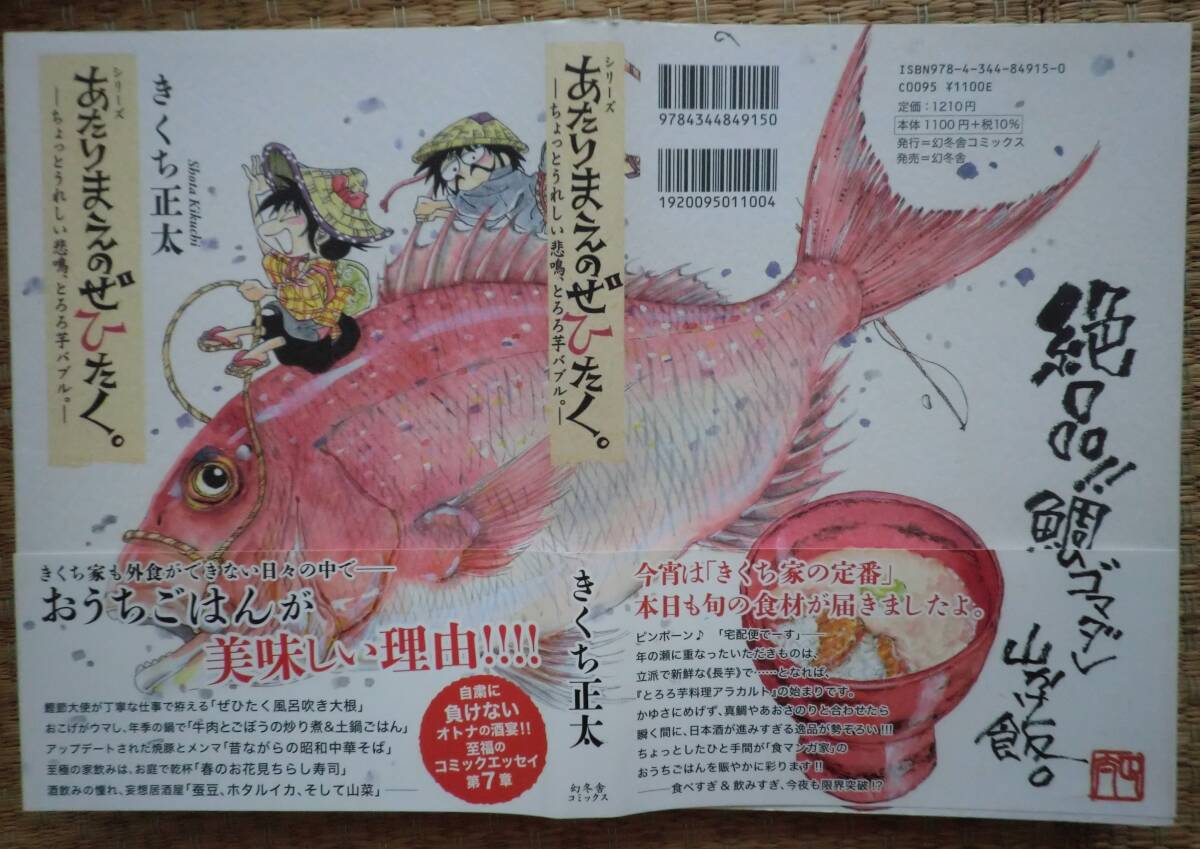 シリーズ
あたりまえのぜひたく。
—ちょっとうれしい悲鳴、とろろ芋バブル。—
きくち正太
Shota Kikuchi
きくち家も外食ができない日々の中で——
おうちごはんが
美味しい理由!!!!
鰹節大使が丁寧な仕事で拵える「ぜひたく風呂吹き大根」
おこげがウマし、年季の鍋で「牛肉とごぼうの炒り煮&土鍋ごはん」
アップデートされた焼豚とメンマ「昔ながらの昭和中華そば」
至極の家飲みは、お庭で乾杯「春のお花見ちらし寿司」
酒飲みの憧れ、妄想居酒屋「蚕豆、ホタルイカ、そして山菜」——
自粛に
負けない
オトナの酒宴!!
至福の
コミックエッセイ
第7章
シリーズ
あたりまえのぜひたく。
—ちょっとうれしい悲鳴、とろろ芋バブル。—
きくち正太
幻冬舎
コミックス
9784344849150
1920095011004
ISBN978-4-344-84915-0
C0095 ¥1100E
定価:1210円
本体1100円+税10%
発行=幻冬舎コミックス
発売=幻冬舎
絶品!!鯛ゴマダレ
山かけ飯。
今宵は「きくち家の定番」
本日も旬の食材が届きましたよ。
ピンポーン♪ 「宅配便でーす」——
年の瀬に重なったいただきものは、
立派で新鮮な《長芋》で……となれば、
『とろろ芋料理アラカルト』の始まりです。
かゆさにめげず、真鯛やあおさのりと合わせたら
瞬く間に、日本酒が進みすぎる逸品が勢ぞろい!!!
ちょっとしたひと手間が「食マンガ家」の
おうちごはんを賑やかに彩ります!!
——食べすぎ&飲みすぎ、今夜も限界突破!?